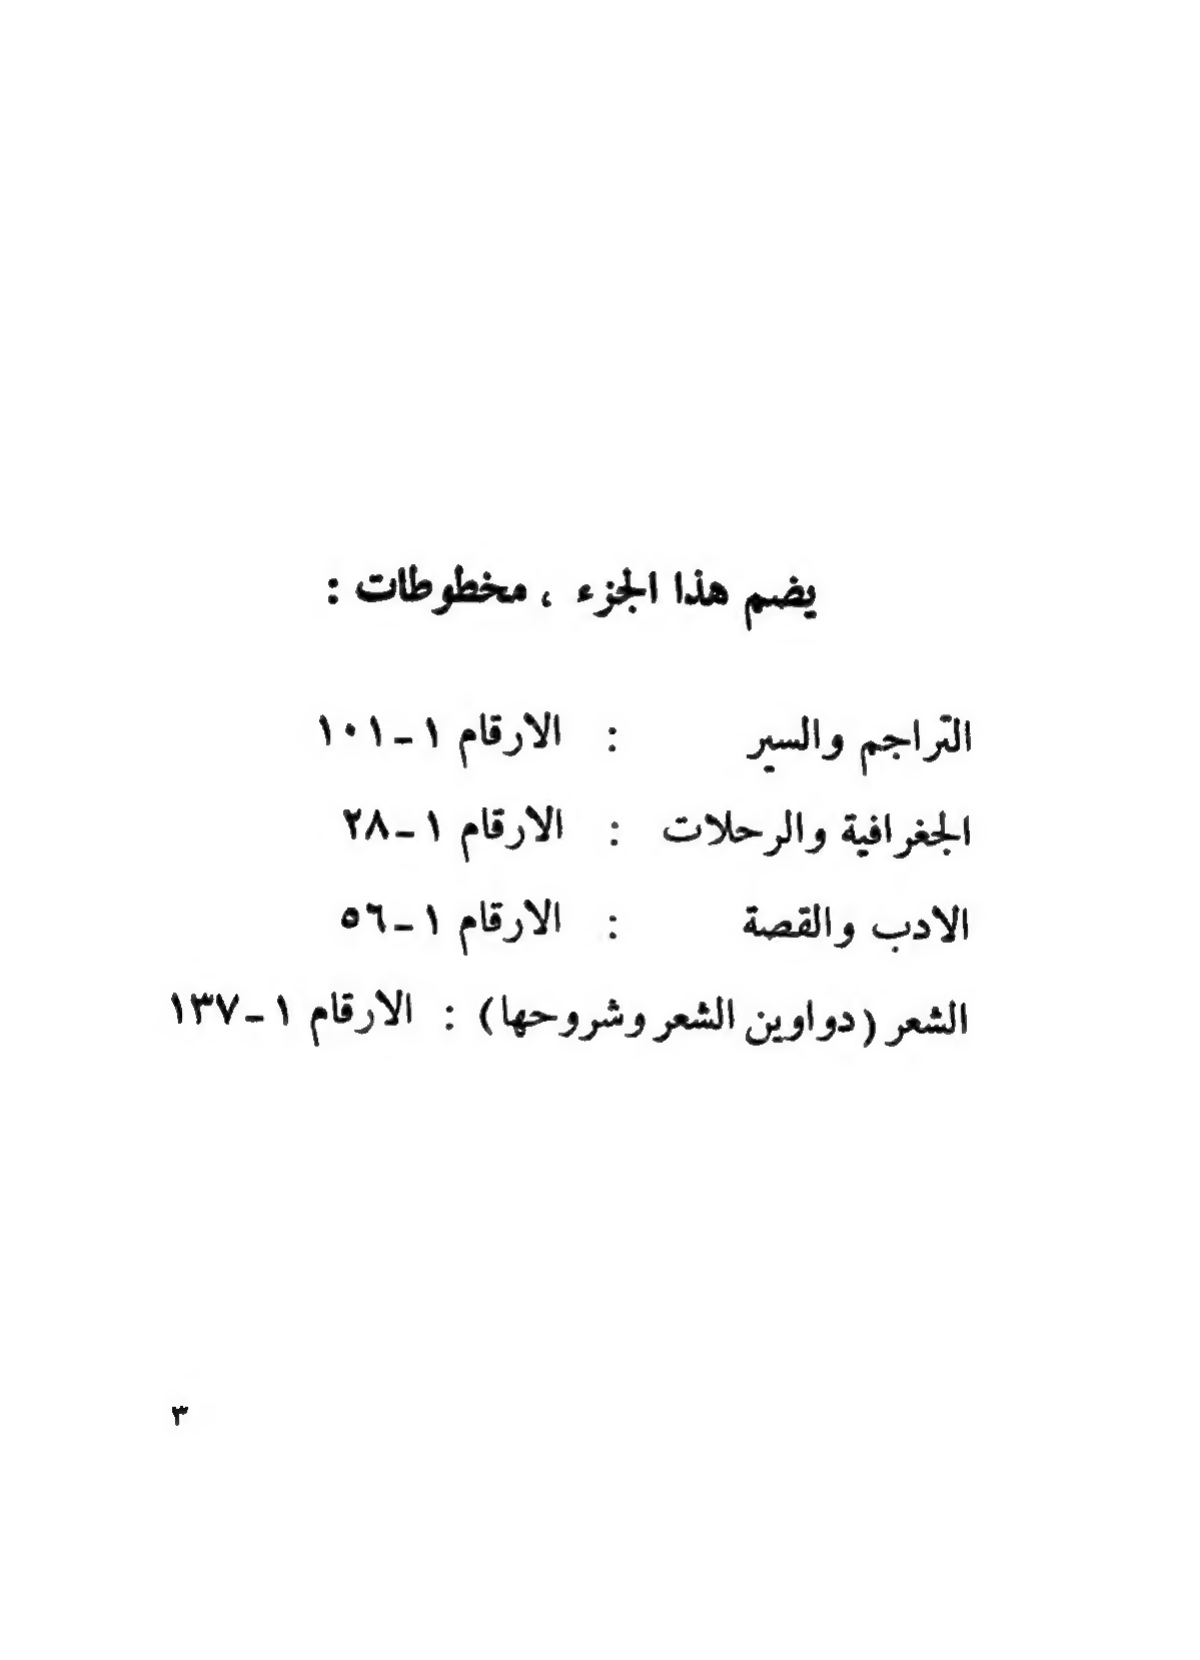 يضم هذا الجزء ، مخطوطات :
التراجم والسير : الارقام ١ــ١٠١
الجغرافية والرحلات : الارقام ١ــ٢٨
الادب والقصة : الارقام ١ــ٥٦
الشعر (دواوين الشعر وشروحها) : الارقام ١ــ١٣٧
٣